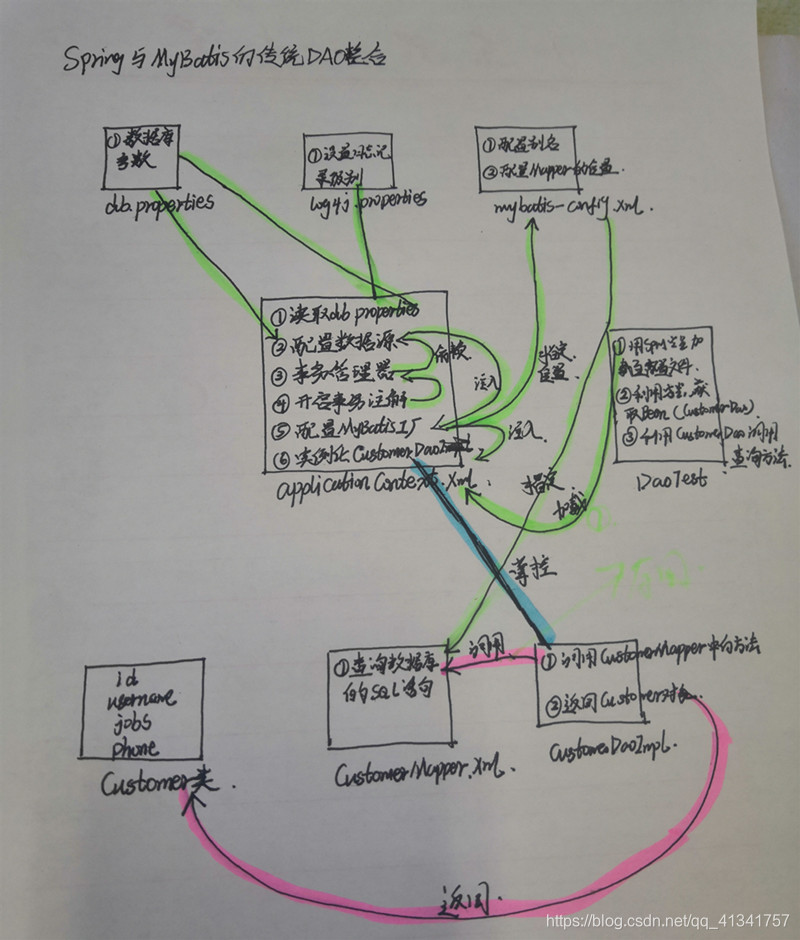 Spring与MyBatis的传统DAO整合
①数据库
参数
db.properties
①设置日志记
录级别
log4j.properties
①配置别名
②配置Mapper的位置.
mybatis-config.xml.
①读取db properties
②配置数据源
③事务管理器
④开启事务注解
⑤配置MyBatis工厂
⑥实例化CustomerDaoImpl
applicationContext.xml.
依赖
注入
注入.
指定
位置.
指定
加载
掌控
①用Spring容器加
载配置文件.
②利用方法,获
取Bean(CustomerDao)
③利用CustomerDao调用
查询方法.
DaoTest
id
username
jobs
phone
Customer类.
①查询数据库
的SQL语句
CustomerMapper.xml.
调用
①调用CustomerMapper中的方法
②返回Customer对象.
CustomerDaoImpl.
返回.
https://blog.csdn.net/qq_41341757